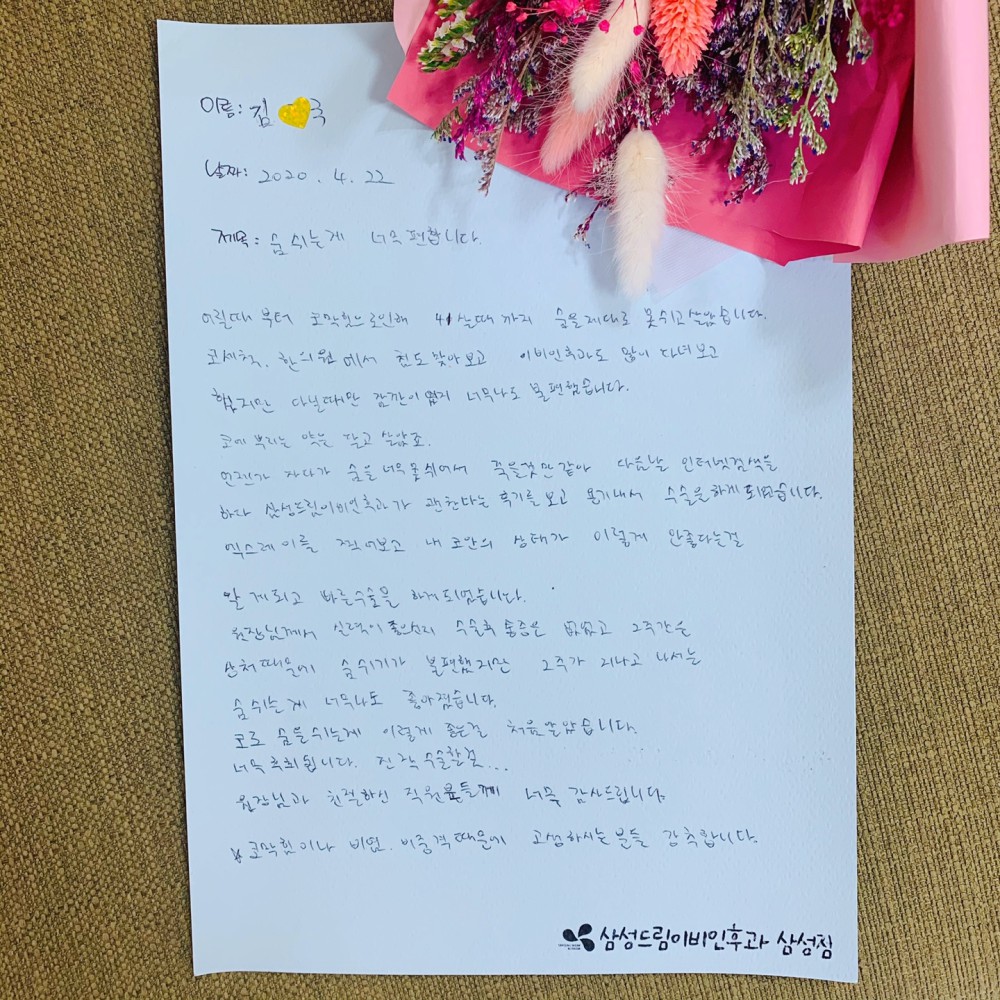 이름: 김 국
날짜: 2020. 4. 22
제목: 숨쉬는게 너무편합니다.
어릴때부터 코막힘으로인해 41살때까지 숨을제대로 못쉬고살았습니다.
코세척, 한의원에서 침도맞아보고 이비인후과도 많이 다녀보고
했지만 다닐때만 잠깐이였지 너무나도 불편했습니다.
코에 뿌리는 약을 달고 살았죠.
언젠가 자다가 숨을너무못쉬어서 죽을것만같아 다음날 인터넷검색을
하다 삼성드림이비인후과가 괜찮다는 후기를보고 용기내서 수술을하게되었습니다.
엑스레이를 찍어보고 내코안의 상태가 이렇게 안좋다는걸
알게되고 바로수술을 하게되었습니다.
원장님께서 실력이 좋으신지 수술후통증은 없었고 2주간은
상처때문에 숨쉬기가 불편했지만 2주가 지나고 나서는
숨쉬는게 너무나도 좋아졌습니다.
코로 숨을쉬는게 이렇게 좋은걸 처음알았습니다.
너무후회됩니다. 진작수술할걸...
원장님과 친절하신 직원분들께 너무 감사드립니다.
※코막힘이나 비염.비중격때문에 고생하시는분들 강추합니다.
삼성드림이비인후과 삼성점